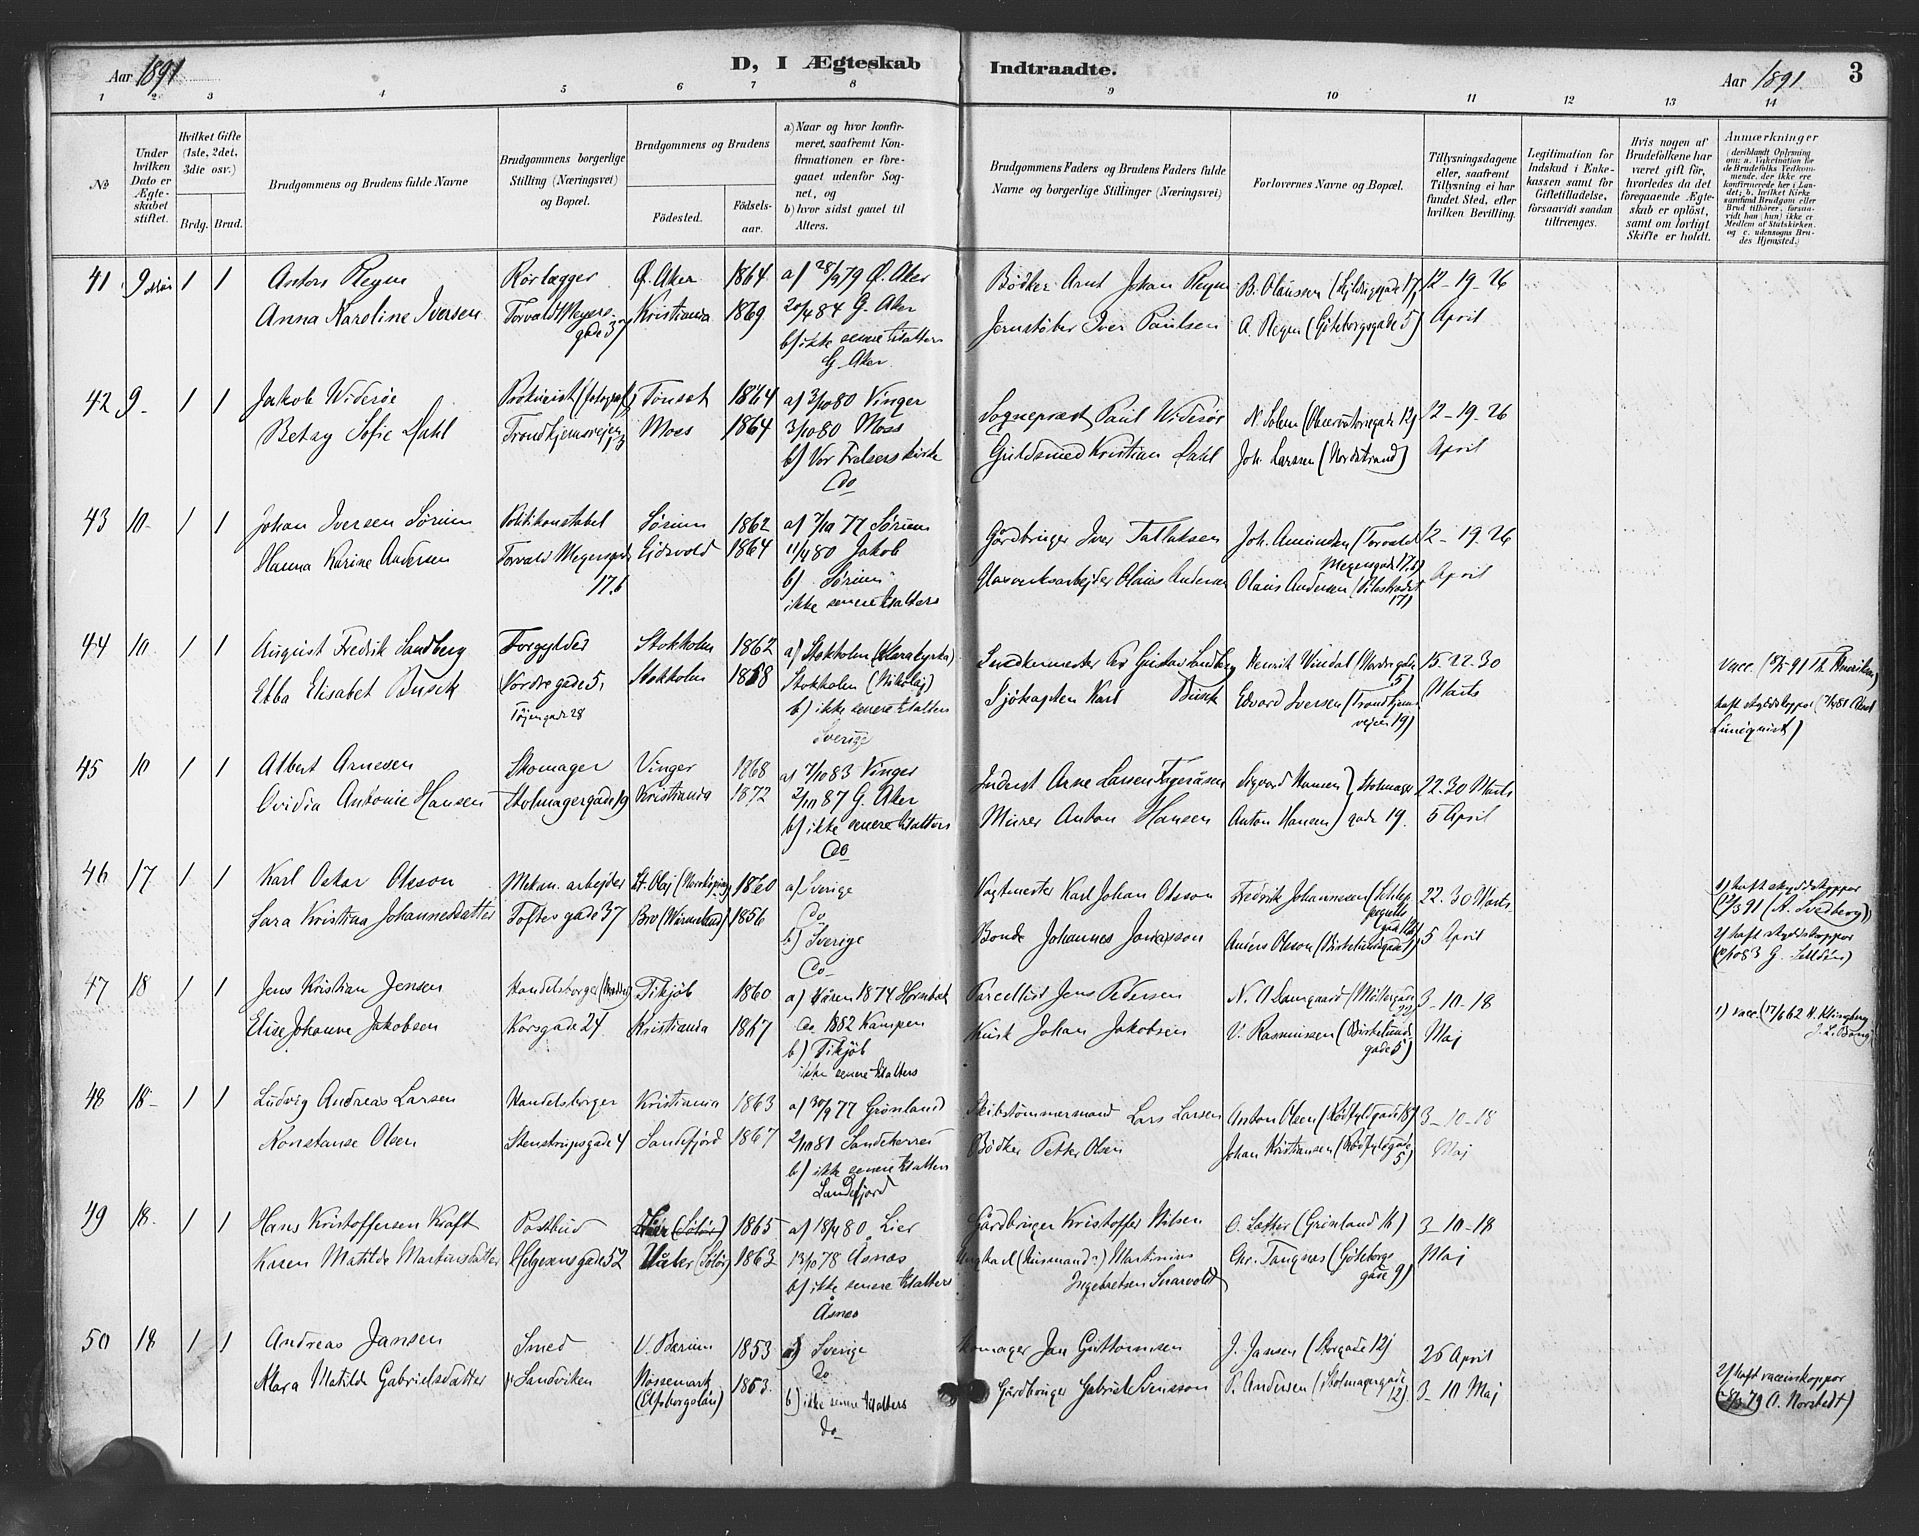 Aar 1891
D, I Ægteskab Indtraadte.
Aar 1891. 3
1 2 3 4 5 6 7 8 9 10 11 12 13 14
№
Under hvilken Dato er Ægteskabet stiftet.
Hvilket Gifte (1ste, 2det, 3die osv.)
Brdg. Brud.
Brudgommens og Brudens fulde Navne
Brudgommens borgerlige Stilling (Næringsvei) og Bopæl.
Brudgommens og Brudens
Fødested. Fødselsaar.
a) Naar og hvor konfirmeret, saafremt Konfirmationen er foregaaet udenfor Sognet, og
b) hvor sidst gaaet til Alters.
Brudgommens Faders og Brudens Faders fulde Navne og borgerlige Stillinger (Næringsvei)
Forlovernes Navne og Bopæl.
Tillysningsdagene eller, saafremt Tillysning ei har fundet Sted, efter hvilken Bevilling.
Legitimation for Indskud i Enkekassen samt for Giftetilladelse, forsaavidt saadan tiltrænges.
Hvis nogen af Brudefolkene har været gift før, hvorledes da det foregaaende Ægteskab er opløst, samt om lovligt Skifte er holdt.
Anmærkninger (deriblandt Oplysning om: a. Vakcination for Brudefolks Vedkommende, der ikke ere konfirmerede her i Landet; b. hvilket Kirkesamfund Brudgom eller Brud tilhører, forsaavidt han (hun) ikke er Medlem af Statskirken, og c. udensogns Brudes Hjemsted.)
41 9 1 1 Anton Regen Rørlægger Ø. Aker 1864 a) 28/9 79 Ø. Aker Bödker Arnt Johan Regen B. Olaussen 12-19-26
Anna Karoline Iversen Torvald Meyersgade 37 Kristiania 1869 20/4 84 G. Aker Jernstöber Iver Paulsen A. Regen (Göteborgsgade 5) April
b) ikke senere t. Alters
G. Aker
42 9- 1 1 Jakob Wideröe Prokurist Tönset 1864 a) 3/10 80 Vinger Sogneprest Paul Wideröe N. Solem (Observatoriegade 12) 12-19-26
Betsy Sofie Dahl Trondhjemsveien 13 Moss 1864 3/10 80 Moss Guldsmed Kristian Dahl Joh. Larssen (Nordstrand) April
b) Vor Frelsers kirke
Do
43 10- 1 1 Johan Iversen Sörum Politikonstabel Sörum 1862 a) 7/10 77 Sörum Gårdbruger Iver Tollaksen Joh. Amundsen (Torvald Meyersgade 17 b) 12-19-26
Hanna Karine Andersen Torvald Meyersgade 17 b Eidsvold 1864 11/4 80 Jakob Glasverksarbejder Olaus Andersen Olaus Andersen April
b) Sörum
ikke senere t. Alters
44 10. 1 1 August Fredrik Sandberg Forgylder Stokholm 1862 a) Stokholm (Klara kyrka) Snedkermester Per Gustav Sandberg Henrik Vindal (Nordregade 5) 15-22-30
Ebba Elisabet Busck Nordregade 5, Stokholm 1868 Stokholm (Nikolaj) Sjökapten Karl Busck Edvard Iversen (Trondhjemsvejen 19) Marts
Töjengade 28 b) ikke senere t. Alters
Sverige
haft skyddskoppor
45 10 1 1 Albert Arnesen Skomager Vinger 1868 a) 7/10 83 Vinger Inderst Arne Larsen Fageråsen Sigvard Hansen 22-30 Marts
Ovidia Antonie Hansen Skolmagergade 19 Kristiania 1872 2/10 87 G. Aker Murer Anton Hansen Anton Hansen gade 19. 5 April
b) ikke senere t. Alters
Do
46 17 1 1 Karl Oskar Olsson Mekan. arbejder St. Olaj (Norrköping) 1860 a) Sverige Vagtmester Karl Johan Olsson Fredrik Johannesen 22-30 Marts
Sara Kristina Johannesdatter Toftesgade 37 Bro (Wärmland) 1856 Do Bonde Johannes Jonasson Anders Olsson (Birkelundsgade) 5 April
b) Sverige
Do
1) haft skyddskoppor
(A. Svedberg)
2) haft skyddskoppor
47 18 1 1 Jens Kristian Jensen Handelsborger Tikjöb 1860 a) Våren 1874 Hornbæk Parcellist Jens Pedersen N. O. Damgaard (Möllergaden) 3-10-18
Elise Johanne Jakobsen Korsgade 24 Kristiania 1867 Do 1882 Kampen Kusk Johan Jakobsen V. Rasmussen (Birkelundsgade 5) Maj
b) Tikjöb
ikke senere t. Alters
48 18- 1 1 Ludvig Andreas Larsen Handelsborger Kristiania 1863 a) 30/9 77 Grönland Skibstömmermand Lars Larsen Anton Olsen (Rödfyldgade 8) 3-10-18
Konstanse Olsen Stenstrupsgade 4 Sandefjord 1867 2/10 81 Sandeherred Bödker Petter Olsen Johan Kristiansen (Rödfyldsgade 5) Maj
b) ikke senere t. Alters
Sandefjord
49 18. 1 1 Hans Kristoffersen Kraft Postbud Lier 1865 a) 18/4 80, Lier Gårdbruger Kristoffer Nilsen O. Sætter (Grönland 16) 3-10-18
Karen Matilde Martinsdatter Helgesensgade 52 Våler (Solör) 1863 13/10 78 Åsnes Ungkarl (Husmand?) Martinius Ingebretsen Snarvold Chr. Tangnes (Göteborggade 9) Maj
b) ikke senere t. Alters
Åsnes
50 18 1 1 Andreas Jansen Smed V. Bærum 1853 a) Sverige Skomager Jan Guttormsen J. Jansen (Storgade 12) 26 April
Klara Matilde Gabrielsdatter Sandviken Nössemark (Elfsborgslän) 1863. Do Gårdbruger Gabriel Svensson P. Andersen (Skolmagergade 12) 3-10 Maj
b) ikke senere t. Alters
Do
2) haft vaccinkoppor
A. Norstedt)